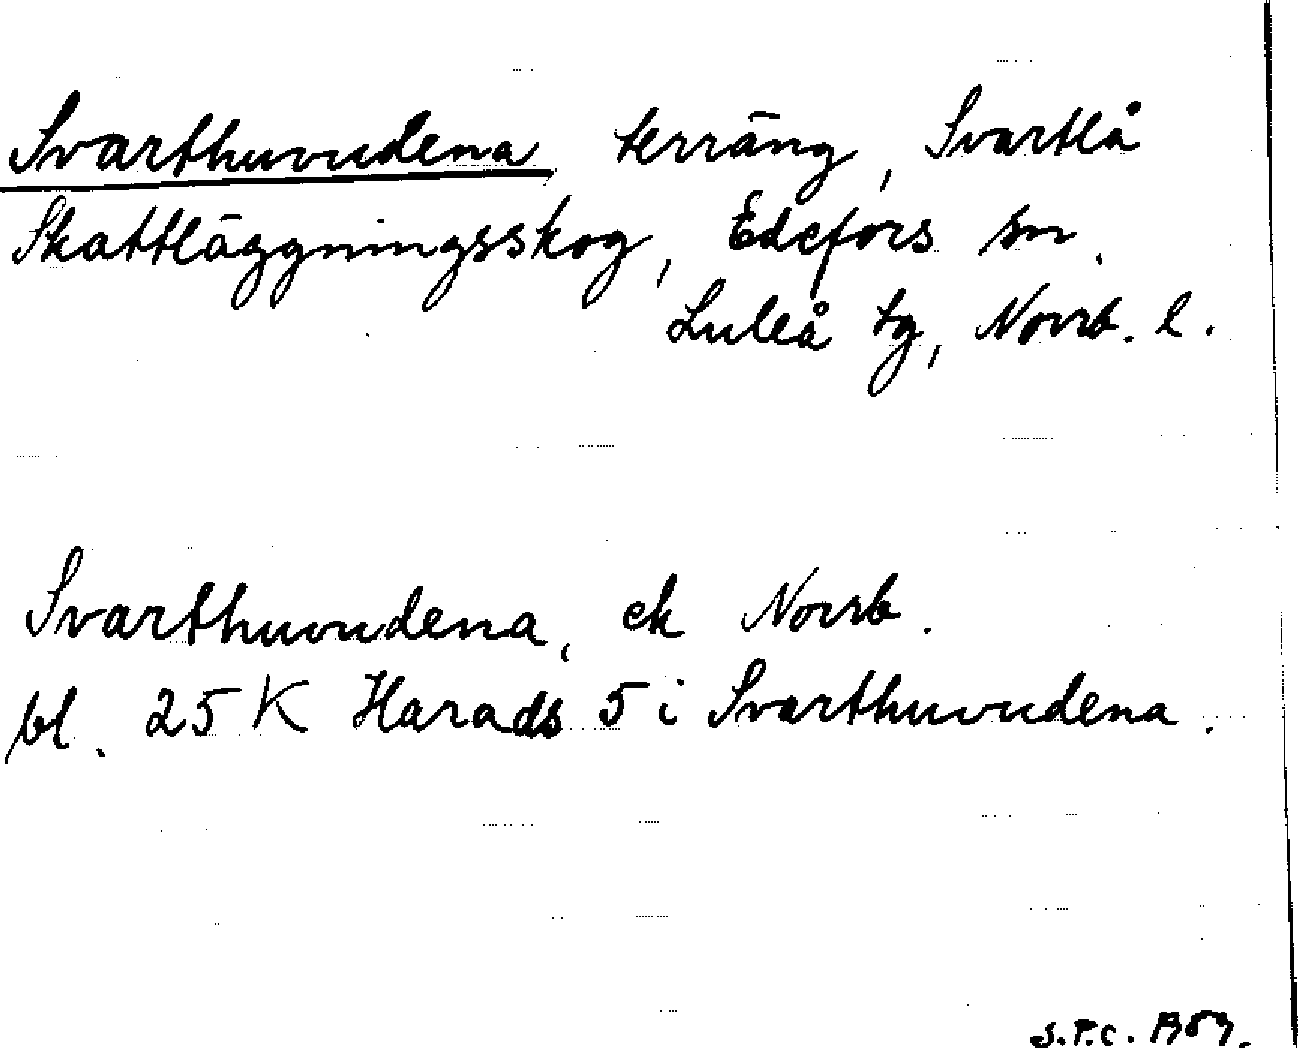 Svarthuvudena, terräng, Svartlå
Skattläggningsskog, Edefors sn.
Luleå tg, Norrb. l.
Svarthuvudena, ek Norrb.
bl. 25 K Harads 5 i Svarthuvudena.